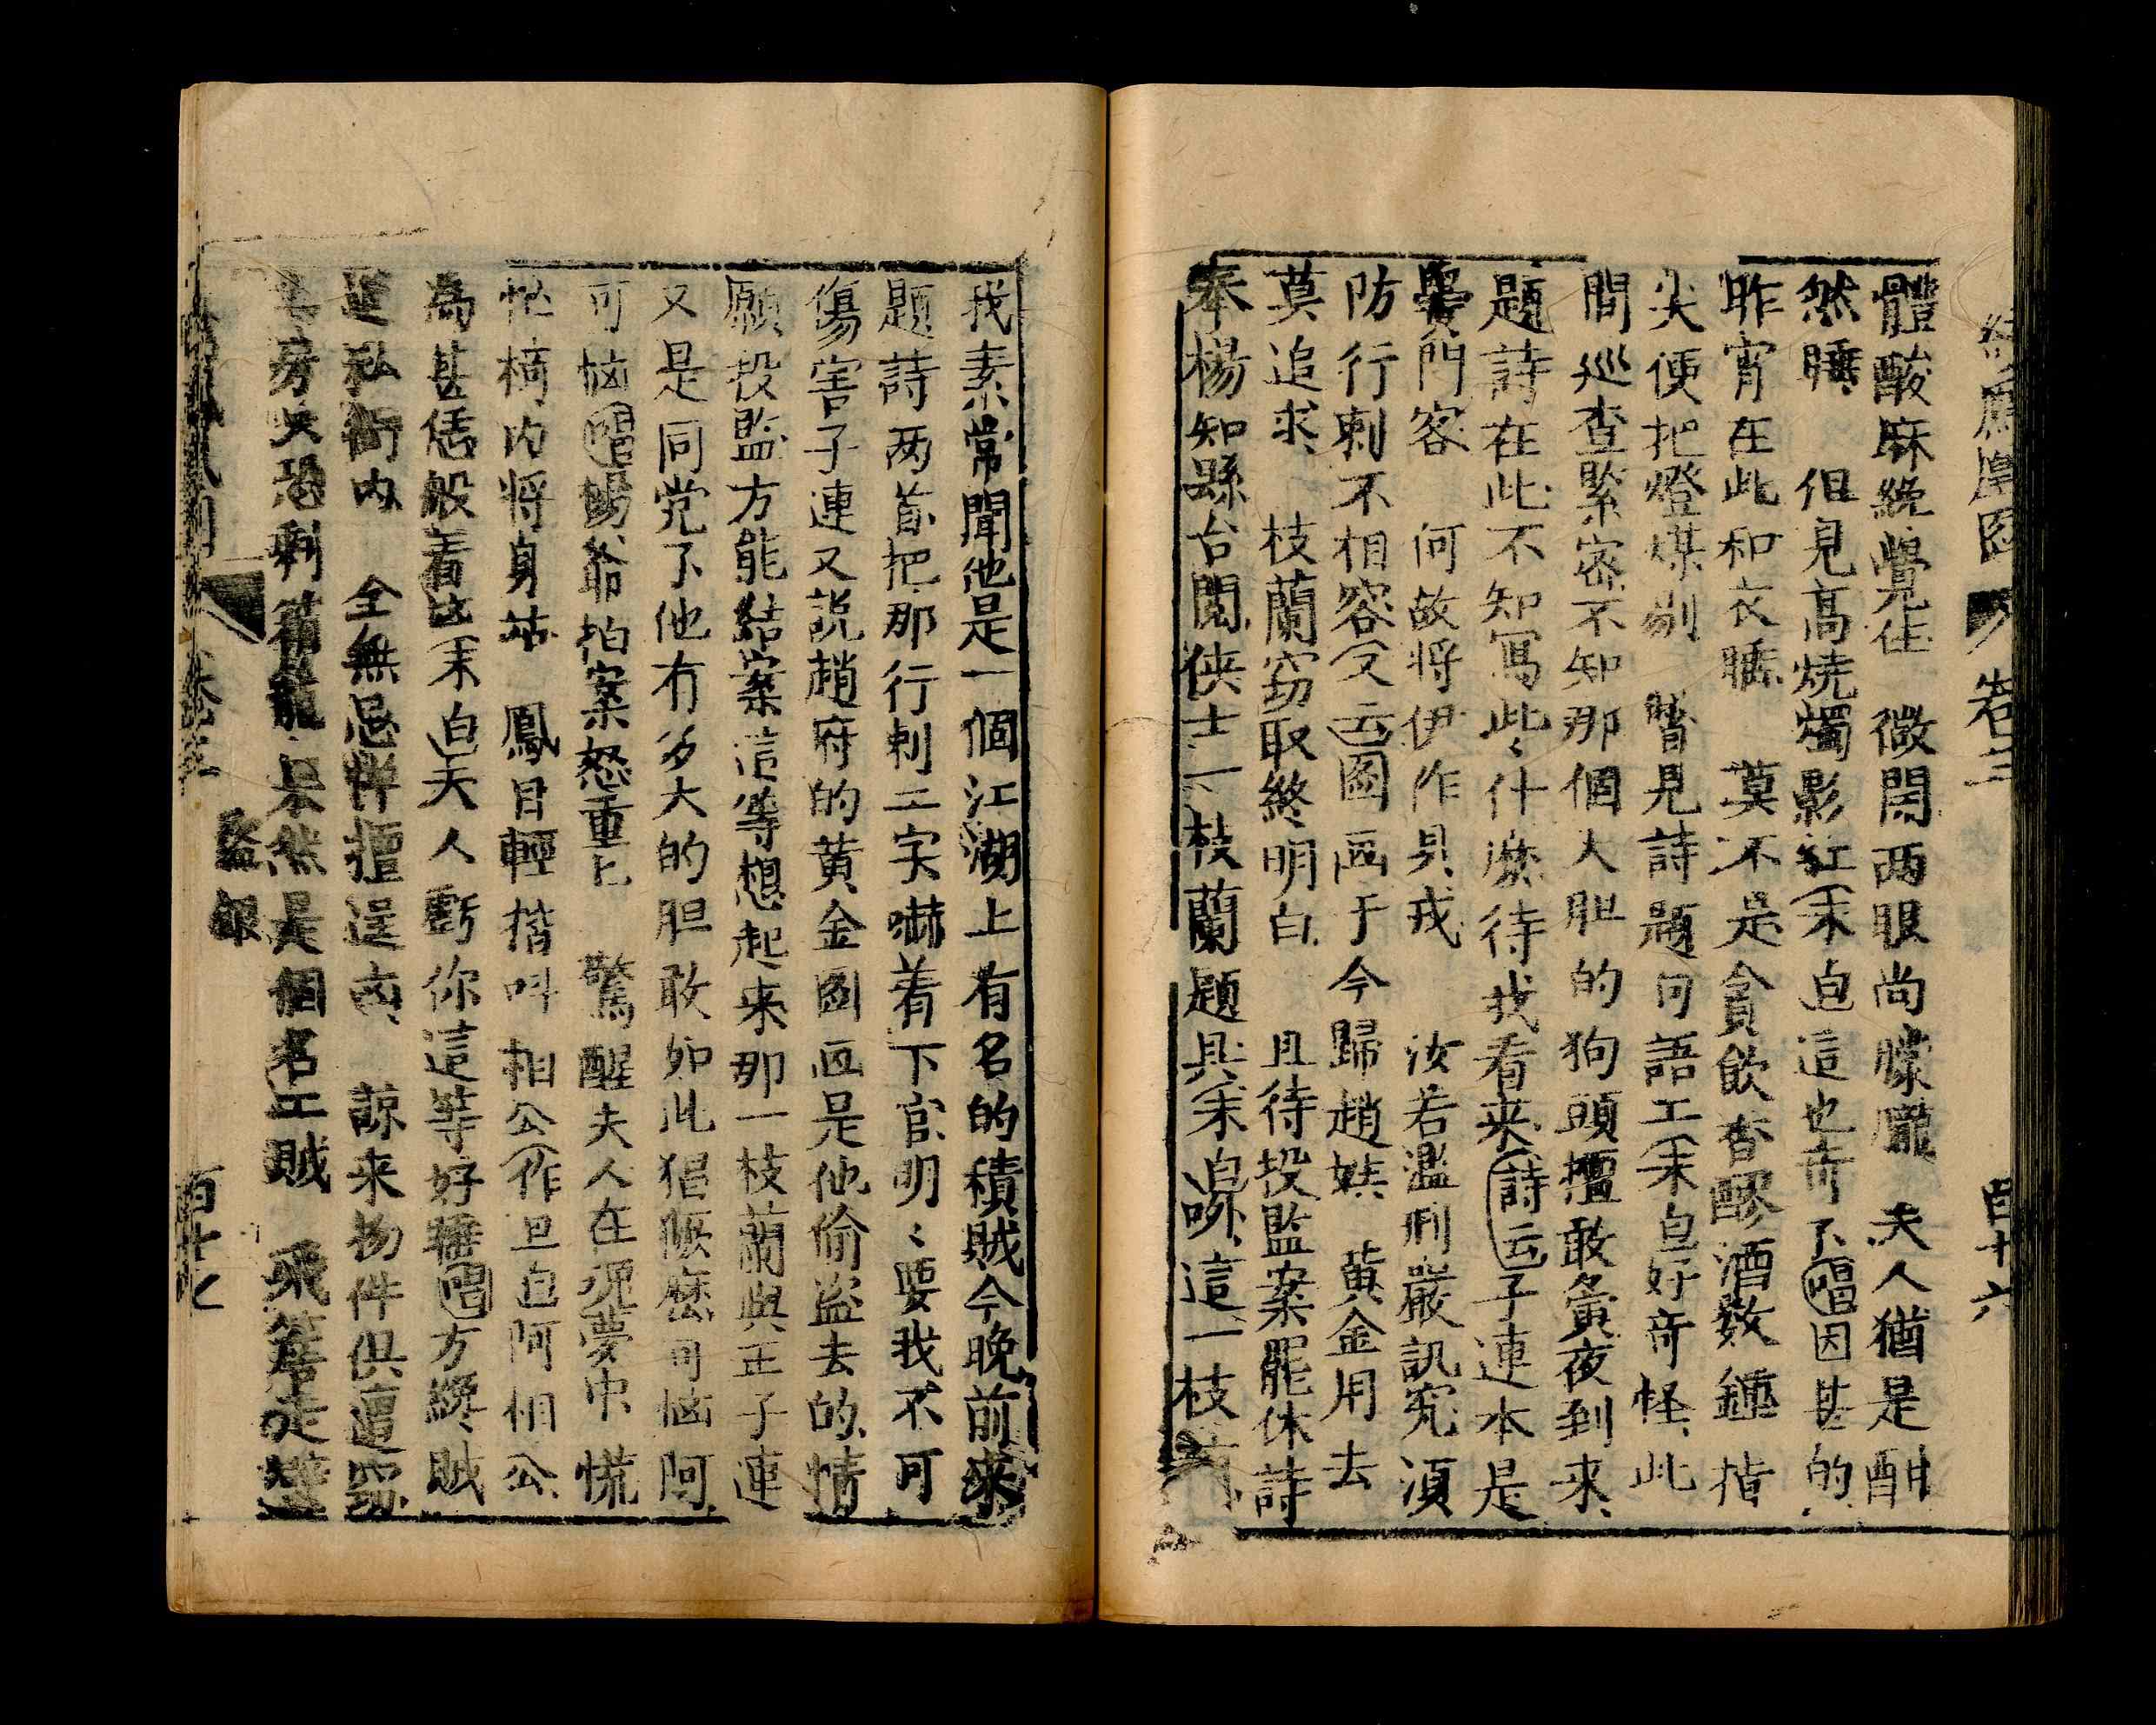 卷三 百十六
體酸麻總覺住 微開两眼尚朦朧 夫人猶是酣
然睡 但見高燒燭影紅(末白這也奇了(唱因甚的
昨宵在此和衣睡 莫不是貪飲香醪酒数鍾 指
尖便把燈煤剔 瞥見詩題句語工(末白好奇怪此
間巡查緊密不知那個人胆的狗頭擅敢夤夜到来
題詩在此不知寫此〻什麽待我看来(詩云子連本是
黌門客 何故将伊作具戎 汝若濫刑嚴訊究 須
防行刺不相容(又云圖画于今歸趙娱 黄金用去
莫追求 枝蘭窃取終明白 且待投監案罷休詩
奉楊知縣台閱俠士一枝蘭題具(末白㖿這一枝
我素常聞他是一個江湖上有名的積賊今晚前來
題詩两首把那行刺二字嚇着下官明〻要我不可
傷害子連又説趙府的黄金圖画是他偷盗去的情
願投監方能結案這等想起来那一枝蘭與王子連
又是同党了他有多大的胆敢如此猖厥麽可悩阿
可悩(唱楊爺拍案怒重〻 驚醒夫人在夢中 慌
忙 内将身 鳳目輕揩呌相公(作旦白阿相公
為甚恁般着 (末白夫人虧你這等好睡(唱方纔賊
進私衙内 全無忌惮擅逞凶 諒来物件俱遭窃
房 恐剩箱籠 果然是個名工賊 飛簷走壁
卷三 盗銀 百十七